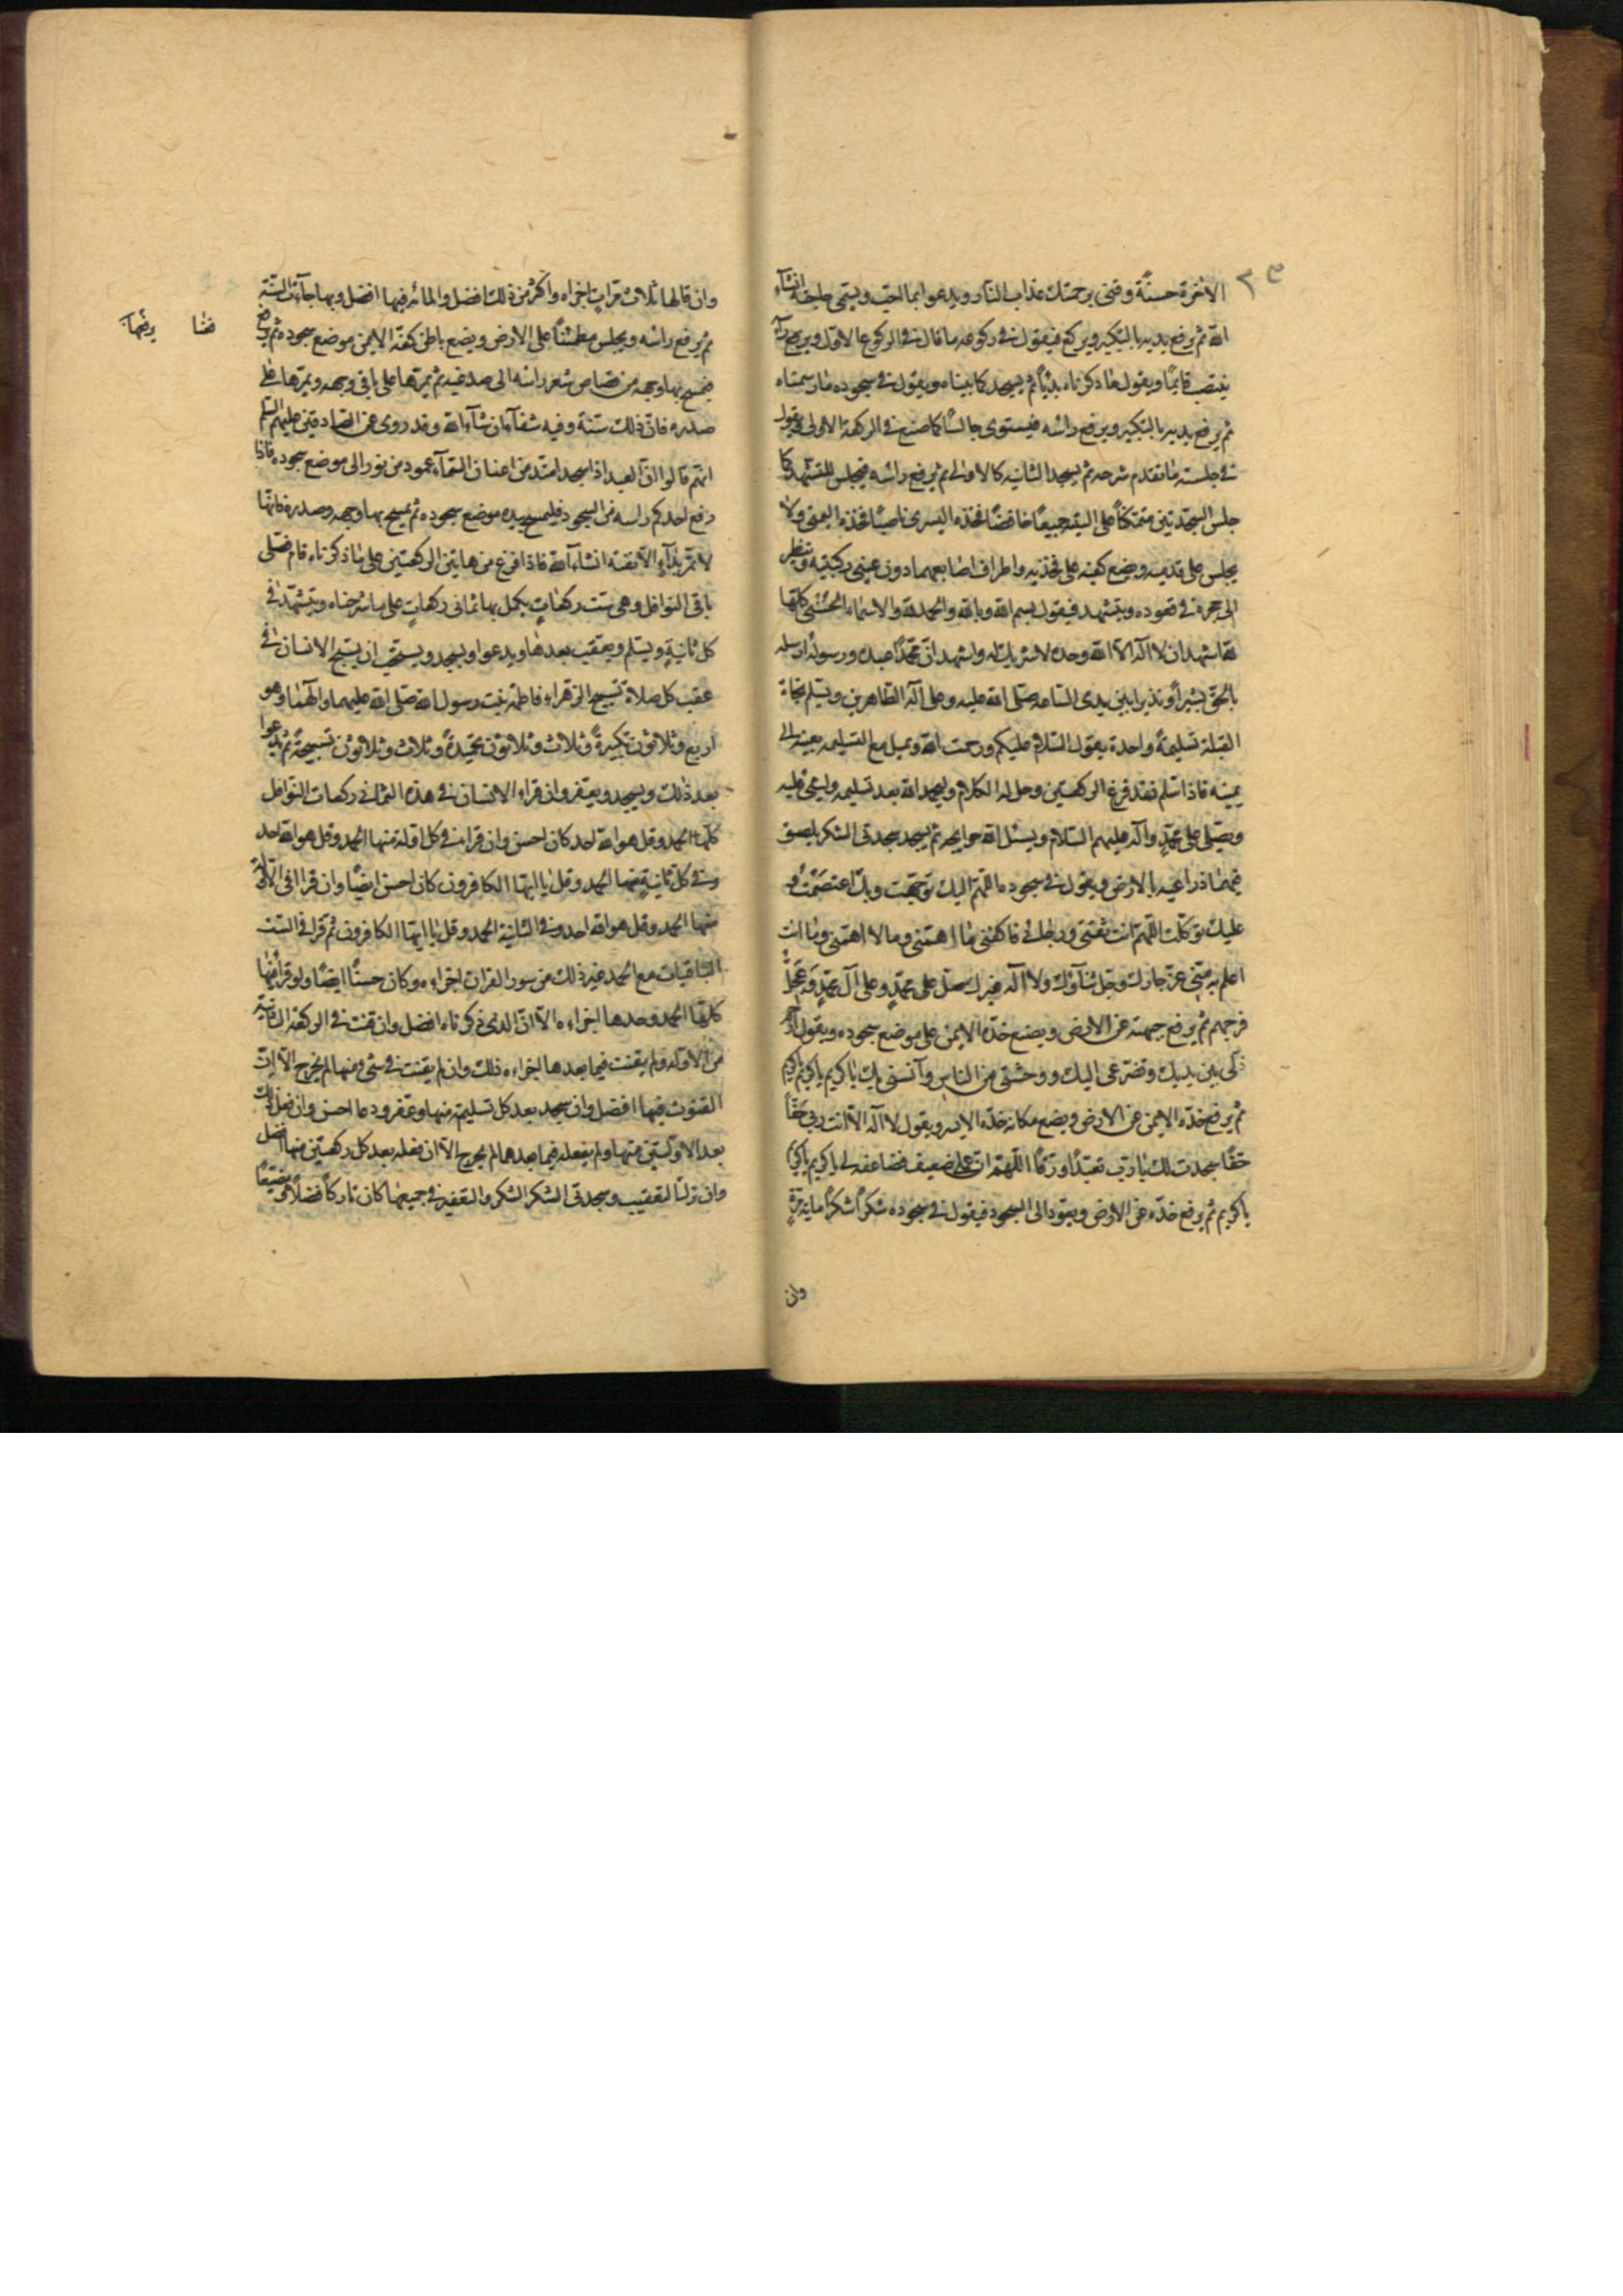 الاخرة حسنة وقنى برحمتك عذاب النار ويدعوا بما احب ويسمى حاجته انشاء
الله ثم يرفع يديه بالتكبير ويركع فيقول فى ركوعه ما قال فى الركوع الاول ويرفع راسه
ينتصب قايمًا ويقول ما ذكرناه بديًا ثم يسجد كما بيناه ويقول فى سجوده ما رسمناه
ثم يرفع يديه بالتكبير ويرفع رأسه فيستوى جالسًا كما صنع فى الركعة الاولى ويقول
فى جلسته ما تقدم شرحه ثم يسجد الثانيه كالاولى ثم يرفع رأسه فيجلس للتشهد كما
جلس السجدتين متمتكًا على اليتيه جميعًا خافضًا فخذه اليسرى ناصبًا فخذه اليمنى ولا
يجلس على قدميه ويضع كفيه على فخذيه واطراف اصابعهما دون عينى ركبتيه وينظر
الى حجره فى قعوده ويتشهد فيقول بسم الله وبالله والحمد لله والاسماء الحسنى كلها
لله اشهد ان لا اله الا الله وحده لا شريك له واشهد ان محمدًا عبده ورسوله ارسله
بالحق بشيرًا ونذيرا بين يدى الساعه صلى الله عليه وعلى آله الطاهرين ويسلم تجاه
القبلة تسليمة واحدة يقول السلام عليكم ورحمت الله ويميل مع التسليمه بعينه الى
يمينه فاذا سلم فقد فرغ الركعتين وحل له الكلام وليحمد الله بعد تسليمه وليثنى عليه
ويصلى على محمد وآله عليهم السلام ويسئل الله حوايجه ثم يسجد سجدتى الشكر يلصق
فيهما ذراعيه بالارض ويقول فى سجوده اللهم اليك توجهت وبك اعتصمت و
عليك توكلت اللهم انت ثقتى ورجائى فاكفنى ما اهمنى وما لا اهمنى وما انت
اعلم به منى عز جارك وجل ثناؤك ولا اله غيرك صل على محمد وعلى آل محمد وعجل
فرجهم ثم يرفع جبهته عن الارض ويضع خده الايمن على موضع سجوده ويقول ارحم
ذلى بين يديك وتضرعى اليك ووحشتى من الناس وآنسنى بك يا كريم يا كريم يا كريم
ثم يرفع خده الايمن عن الارض ويضع مكانه خده الايسر ويقول لا اله الا انت ربى حقًا
حقًا سجدت لك يا رب تعبدًا ورقًا اللهم ان عملى ضعيف فضاعفه لى يا كريم يا كريم
يا كريم ثم يرفع خده عن الارض ويعود الى السجود فيقول فى سجوده شكرًا شكرًا ماية مرة
وان
وان قالها ثلاث مرات اجزاه واكثر من ذلك افضل والمائه فيها افضل وبها جاءت السنة
ثم يرفع رأسه ويجلس مطمئنًا على الارض ويضع باطن كفه الايمن موضع سجوده ثم يرفع
فيمسح بها وجهه من قصاص شعر راسه الى صدغيه ثم يمرها على باقى وجهه ويمرها على
صدره فان ذلك سنة وفيه شفآء ان شآء الله وقد روى عن الصادقين عليهم السلم
انهم قالوا ان العبد اذا سجد امتد من اعنان السمآء عمود من نور الى موضع سجوده فاذا
رفع احدكم راسه من السجود فليمسح بيده موضع سجوده ثم يمسح بها وجهه وصدره فانها
لا تمر بدآء الا نفته انشاء الله فاذا فرغ من هاتين الركعتين على ما ذكرناه قام فصلى
باقى النوافل وهى ست ركعات يكمل بها ثمانى ركعات على ما شرحناه ويتشهد فى
كل ثانية ويسلم ويعقب بعدها ويدعوا ويسجد ويستحب ان يسبح الانسان فى
عقب كل صلاة تسبيح الزهراء فاطمه بنت رسول الله صلى الله عليهما وآلهما وهو
اربع وثلاثون تكبيرة وثلاث وثلاثون تحميدة وثلاث وثلاثون تسبيحة ثم يدعوا
بعد ذلك ويسجد ويعفر وان قراء الانسان فى هذه الثمانى ركعات النوافل
كلها الحمد وقل هو الله احد كان احسن وان قراء فى كل اوله منها الحمد وقل هو الله احد
وفى كل ثانية منها الحمد وقل يا ايها الكافرون كان احسن ايضًا وان قرا فى الاولى
منها الحمد وقل هو الله احد وفى الثانية الحمد وقل يا ايها الكافرون ثم قرا فى الست
الباقيات مع الحمد غير ذلك من سور القران اجزاءه وكان حسنًا ايضًا ولو قرأ فيها
كلها الحمد وحدها اجزاءه الا ان الذى ذكرناه افضل وان قنت فى الركعة الثانية
من الاوله ولم يقنت فيما بعدها اجزاءه ذلك وان لم يقنت فى شىء منها لم يحرج الا ان
القنوت فيها افضل وان سجد بعد كل تسليمة منها وعفر ودعا احسن وان فعل ذلك
بعد الاولتين منها ولم يفعله فيما بعدها لم يحرج الا ان فعله بعد كل ركعتين منها افضل
وان ترك التعقيب وسجدتى الشكر والتعفير فى جميعها كان تاركًا فضلًا ومضيعًا